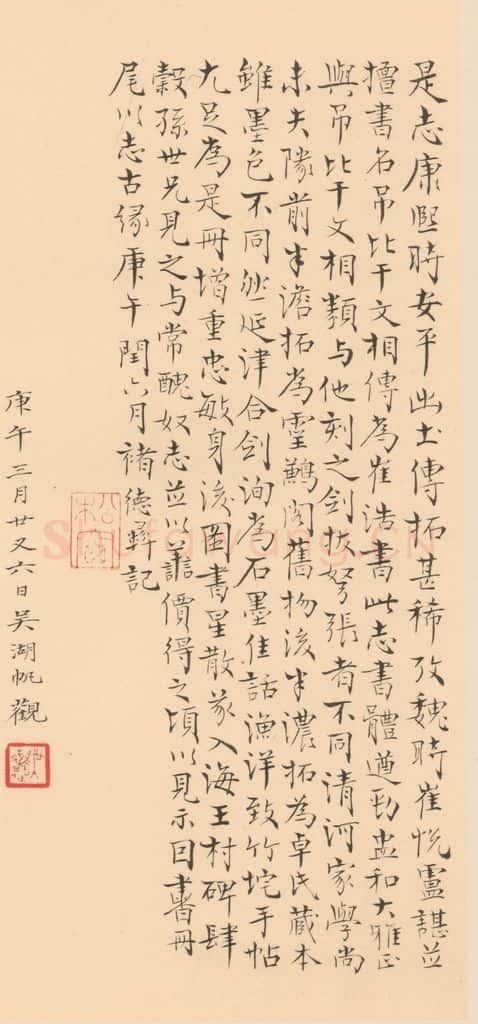 是志康熙時安平出土傳拓甚稀攷魏時崔悦盧諶並
擅書名吊比干文相傳為崔浩書此志書體遒勁盅和大雅正
與吊比干文相類与他刻之劍拔弩張者不同清河家學尚
未失隊前半澹拓為霻鶼閣舊物後半濃拓為卓氏藏本
雖墨色不同然延津合劍洵為石墨佳話漁洋致竹垞手帖
尤足為是冊增重忠敏身後圖書星散入海王村碑肆
縠孫世兄見之与常醜奴志並以譱價得之頃以見示因書冊
尾以志古緣庚午閏六月褚德彝記
庚午三月廿又六日吴湖帆觀